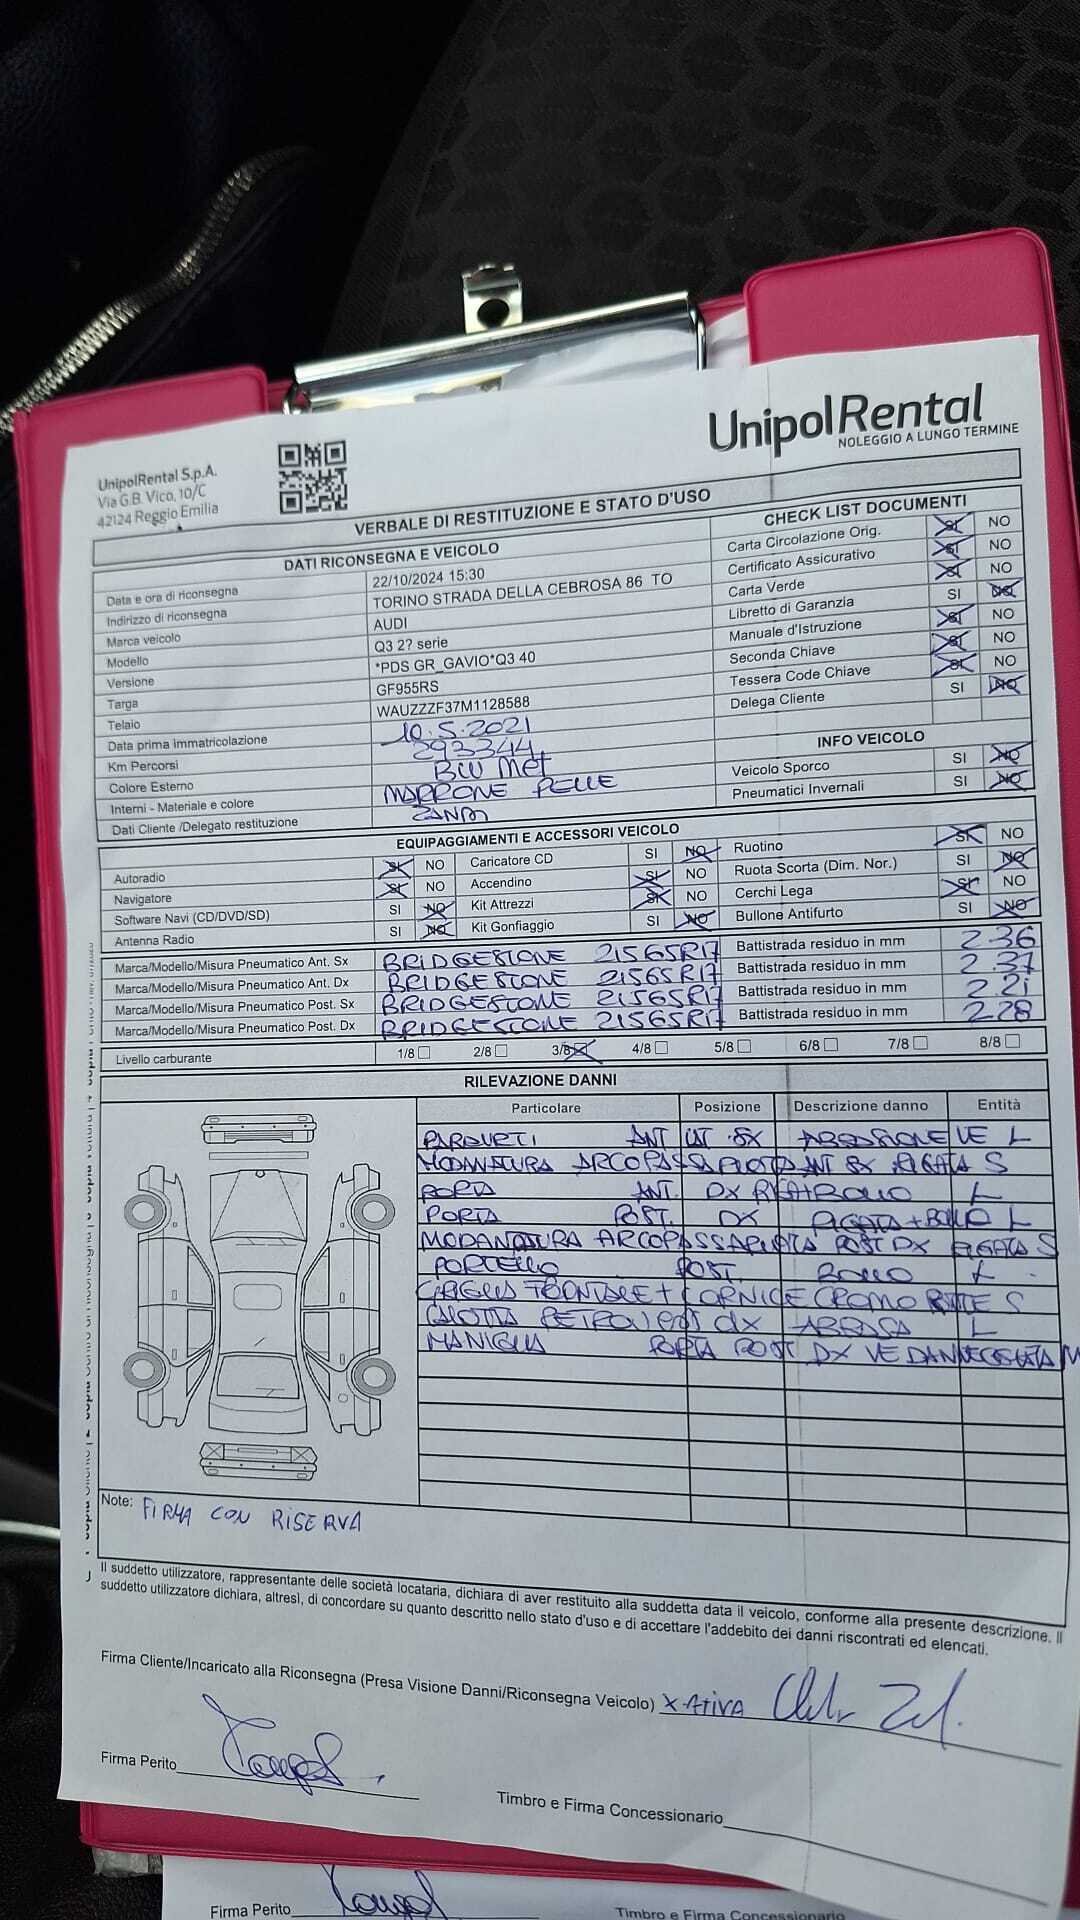 UnipolRental S.p.A.
Via G.B. Vico, 10/C
42124 Reggio Emilia
UnipolRental
NOLEGGIO A LUNGO TERMINE
VERBALE DI RESTITUZIONE E STATO D'USO
DATI RICONSEGNA E VEICOLO
Data e ora di riconsegna 22/10/2024 15:30
Indirizzo di riconsegna TORINO STRADA DELLA CEBROSA 86 TO
Marca veicolo AUDI
Modello Q3 2? serie
Versione *PDS GR_GAVIO*Q3 40
Targa GF955RS
Telaio WAUZZZF37M1128588
Data prima immatricolazione 10.5.2021
Km Percorsi 293344
Colore Esterno BLU Met
Interni - Materiale e colore MARRONE PELLE
Dati Cliente /Delegato restituzione
CHECK LIST DOCUMENTI
Carta Circolazione Orig. SI NO
Certificato Assicurativo SI NO
Carta Verde SI NO
Libretto di Garanzia SI NO
Manuale d'Istruzione SI NO
Seconda Chiave SI NO
Tessera Code Chiave SI NO
Delega Cliente SI NO
INFO VEICOLO
Veicolo Sporco SI NO
Pneumatici Invernali SI NO
EQUIPAGGIAMENTI E ACCESSORI VEICOLO
Autoradio SI NO Caricatore CD SI NO Ruotino SI NO
Navigatore SI NO Accendino SI NO Ruota Scorta (Dim. Nor.) SI NO
Software Navi (CD/DVD/SD) SI NO Kit Attrezzi SI NO Cerchi Lega SI NO
Antenna Radio SI NO Kit Gonfiaggio SI NO Bullone Antifurto SI NO
Marca/Modello/Misura Pneumatico Ant. Sx BRIDGESTONE 21565R17 Battistrada residuo in mm 2.36
Marca/Modello/Misura Pneumatico Ant. Dx BRIDGESTONE 21565R17 Battistrada residuo in mm 2.37
Marca/Modello/Misura Pneumatico Post. Sx BRIDGESTONE 21565R17 Battistrada residuo in mm 2.21
Marca/Modello/Misura Pneumatico Post. Dx BRIDGESTONE 21565R17 Battistrada residuo in mm 2.28
Livello carburante 1/8 2/8 3/8 4/8 5/8 6/8 7/8 8/8
RILEVAZIONE DANNI
Particolare Posizione Descrizione danno Entità
PARAURTI ANT LAT SX ABRASIONE VE L
MODANATURA ARCOPASSARUOTA ANT SX RIGATA S
PORTA ANT. DX RIGA+BOLLO L
PORTA POST. DX RIGATA+BOLLO L
MODANATURA ARCOPASSARUOTA POST DX RIGATA S
PORTELLO POST. BOLLO L
GRIGLIA FRONTALE + CORNICE CROMO ROTTE S
CALOTTA RETROV EST DX ABRASA L
MANIGLIA PORTA POST DX VE DANNEGGIATA M
Note: FIRMA CON RISERVA
Il suddetto utilizzatore, rappresentante delle società locataria, dichiara di aver restituito alla suddetta data il veicolo, conforme alla presente descrizione. Il
suddetto utilizzatore dichiara, altresì, di concordare su quanto descritto nello stato d'uso e di accettare l'addebito dei danni riscontrati ed elencati.
Firma Cliente/Incaricato alla Riconsegna (Presa Visione Danni/Riconsegna Veicolo) X ATIVA
Firma Perito
Timbro e Firma Concessionario
Firma Perito
Timbro e Firma Concessionario